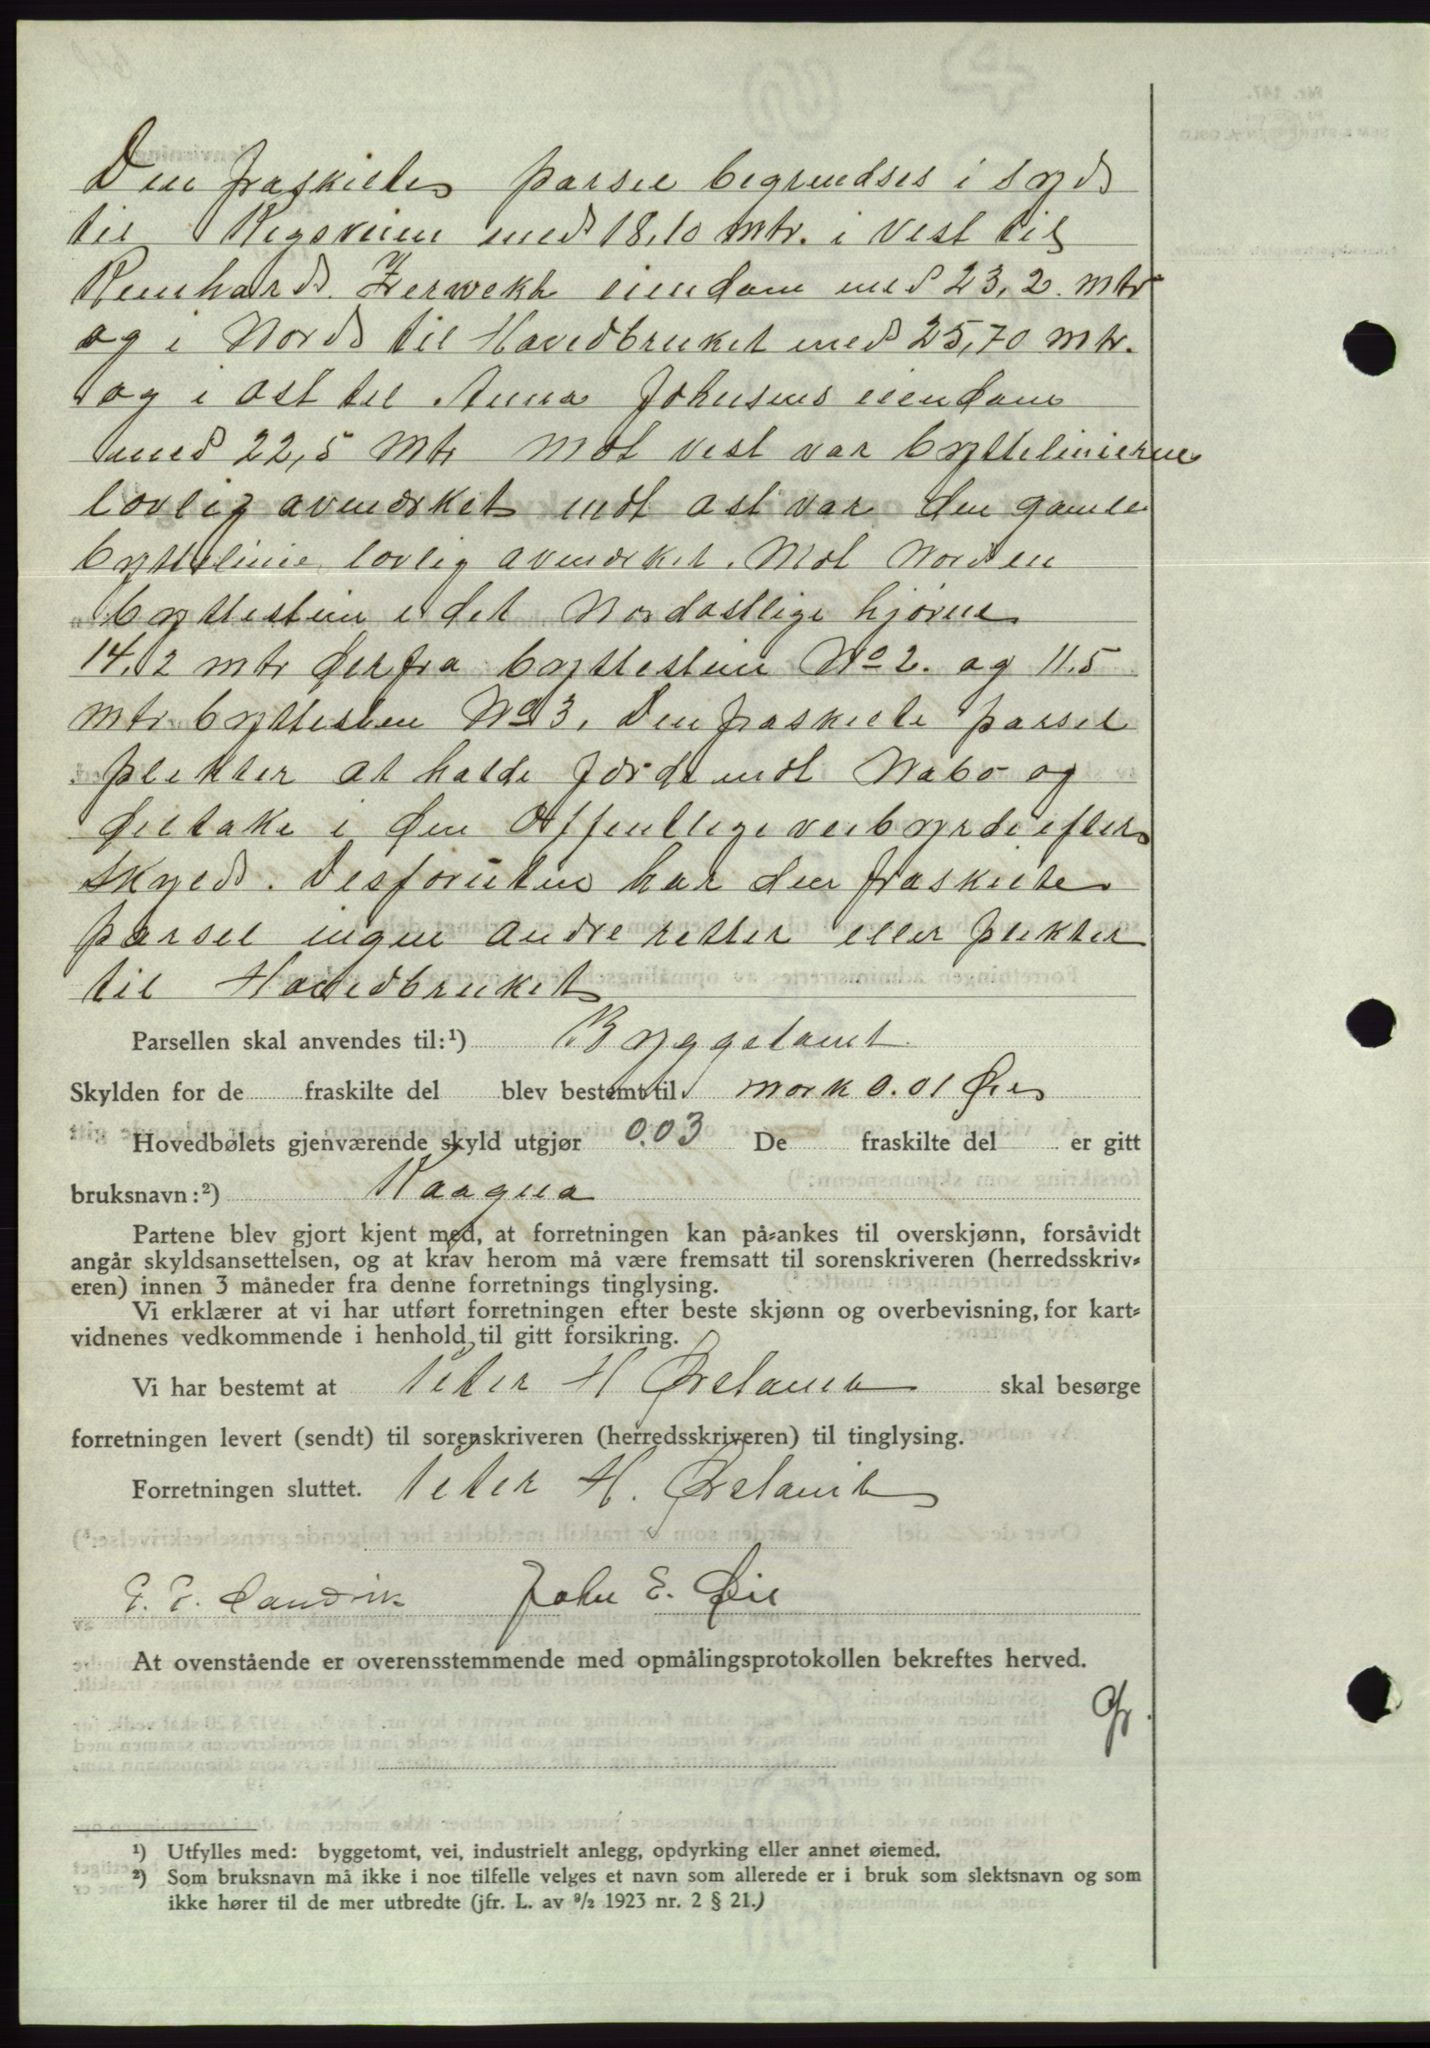 Den fraskielte parsel begrendses i syd
til Rigsveien med 18,10 mtr. i vest til
Reinhard Zerwekh eiendom med 23,2. mtr
og i Nord til Hovedbruket med 25,70 mtr.
og i ost til Anna Johnsens eiendom
med 22,5 Mtr Mot vest var byttelinierne
lovlig avmerket mot ost var den gamle
byttelinie lovlig avmerket. Mot Nord en
byttestein i det Nordostlige hjørne
14,2 mtr derfra byttestein No 2. og 11.5
mtr byttesten No 3. Den fraskielte parsel
plikter at holde gjerde mot Nabo og
deltake i den Offentlige veibyrde efter
skyld. Desforuten har den fraskielte
parsel ingen andre retter eller plikter
til Hovedbruket
Parsellen skal anvendes til:¹) Byggetomt
Skylden for de fraskilte del blev bestemt til mark 0.01 Øre
Hovedbølets gjenværende skyld utgjør 0.03 De fraskilte del er gitt
bruksnavn:²)
Partene blev gjort kjent med, at forretningen kan på-ankes til overskjønn, forsåvidt
angår skyldsansettelsen, og at krav herom må være fremsatt til sorenskriveren (herredsskriv-
eren) innen 3 måneder fra denne forretnings tinglysing.
Vi erklærer at vi har utført forretningen efter beste skjønn og overbevisning, for kart-
vidnenes vedkommende i henhold til gitt forsikring.
Vi har bestemt at Peter H Ørstavik skal besørge
forretningen levert (sendt) til sorenskriveren (herredsskriveren) til tinglysing.
Forretningen sluttet. Peter H. Ørstavik
John E. Øie
At ovenstående er overensstemmende med opmålingsprotokollen bekreftes herved.
¹) Utfylles med: byggetomt, vei, industrielt anlegg, opdyrking eller annet øiemed.
²) Som bruksnavn må ikke i noe tilfelle velges et navn som allerede er i bruk som slektsnavn og som
ikke hører til de mer utbredte (jfr. L. av 9/2 1923 nr. 2 § 21.)